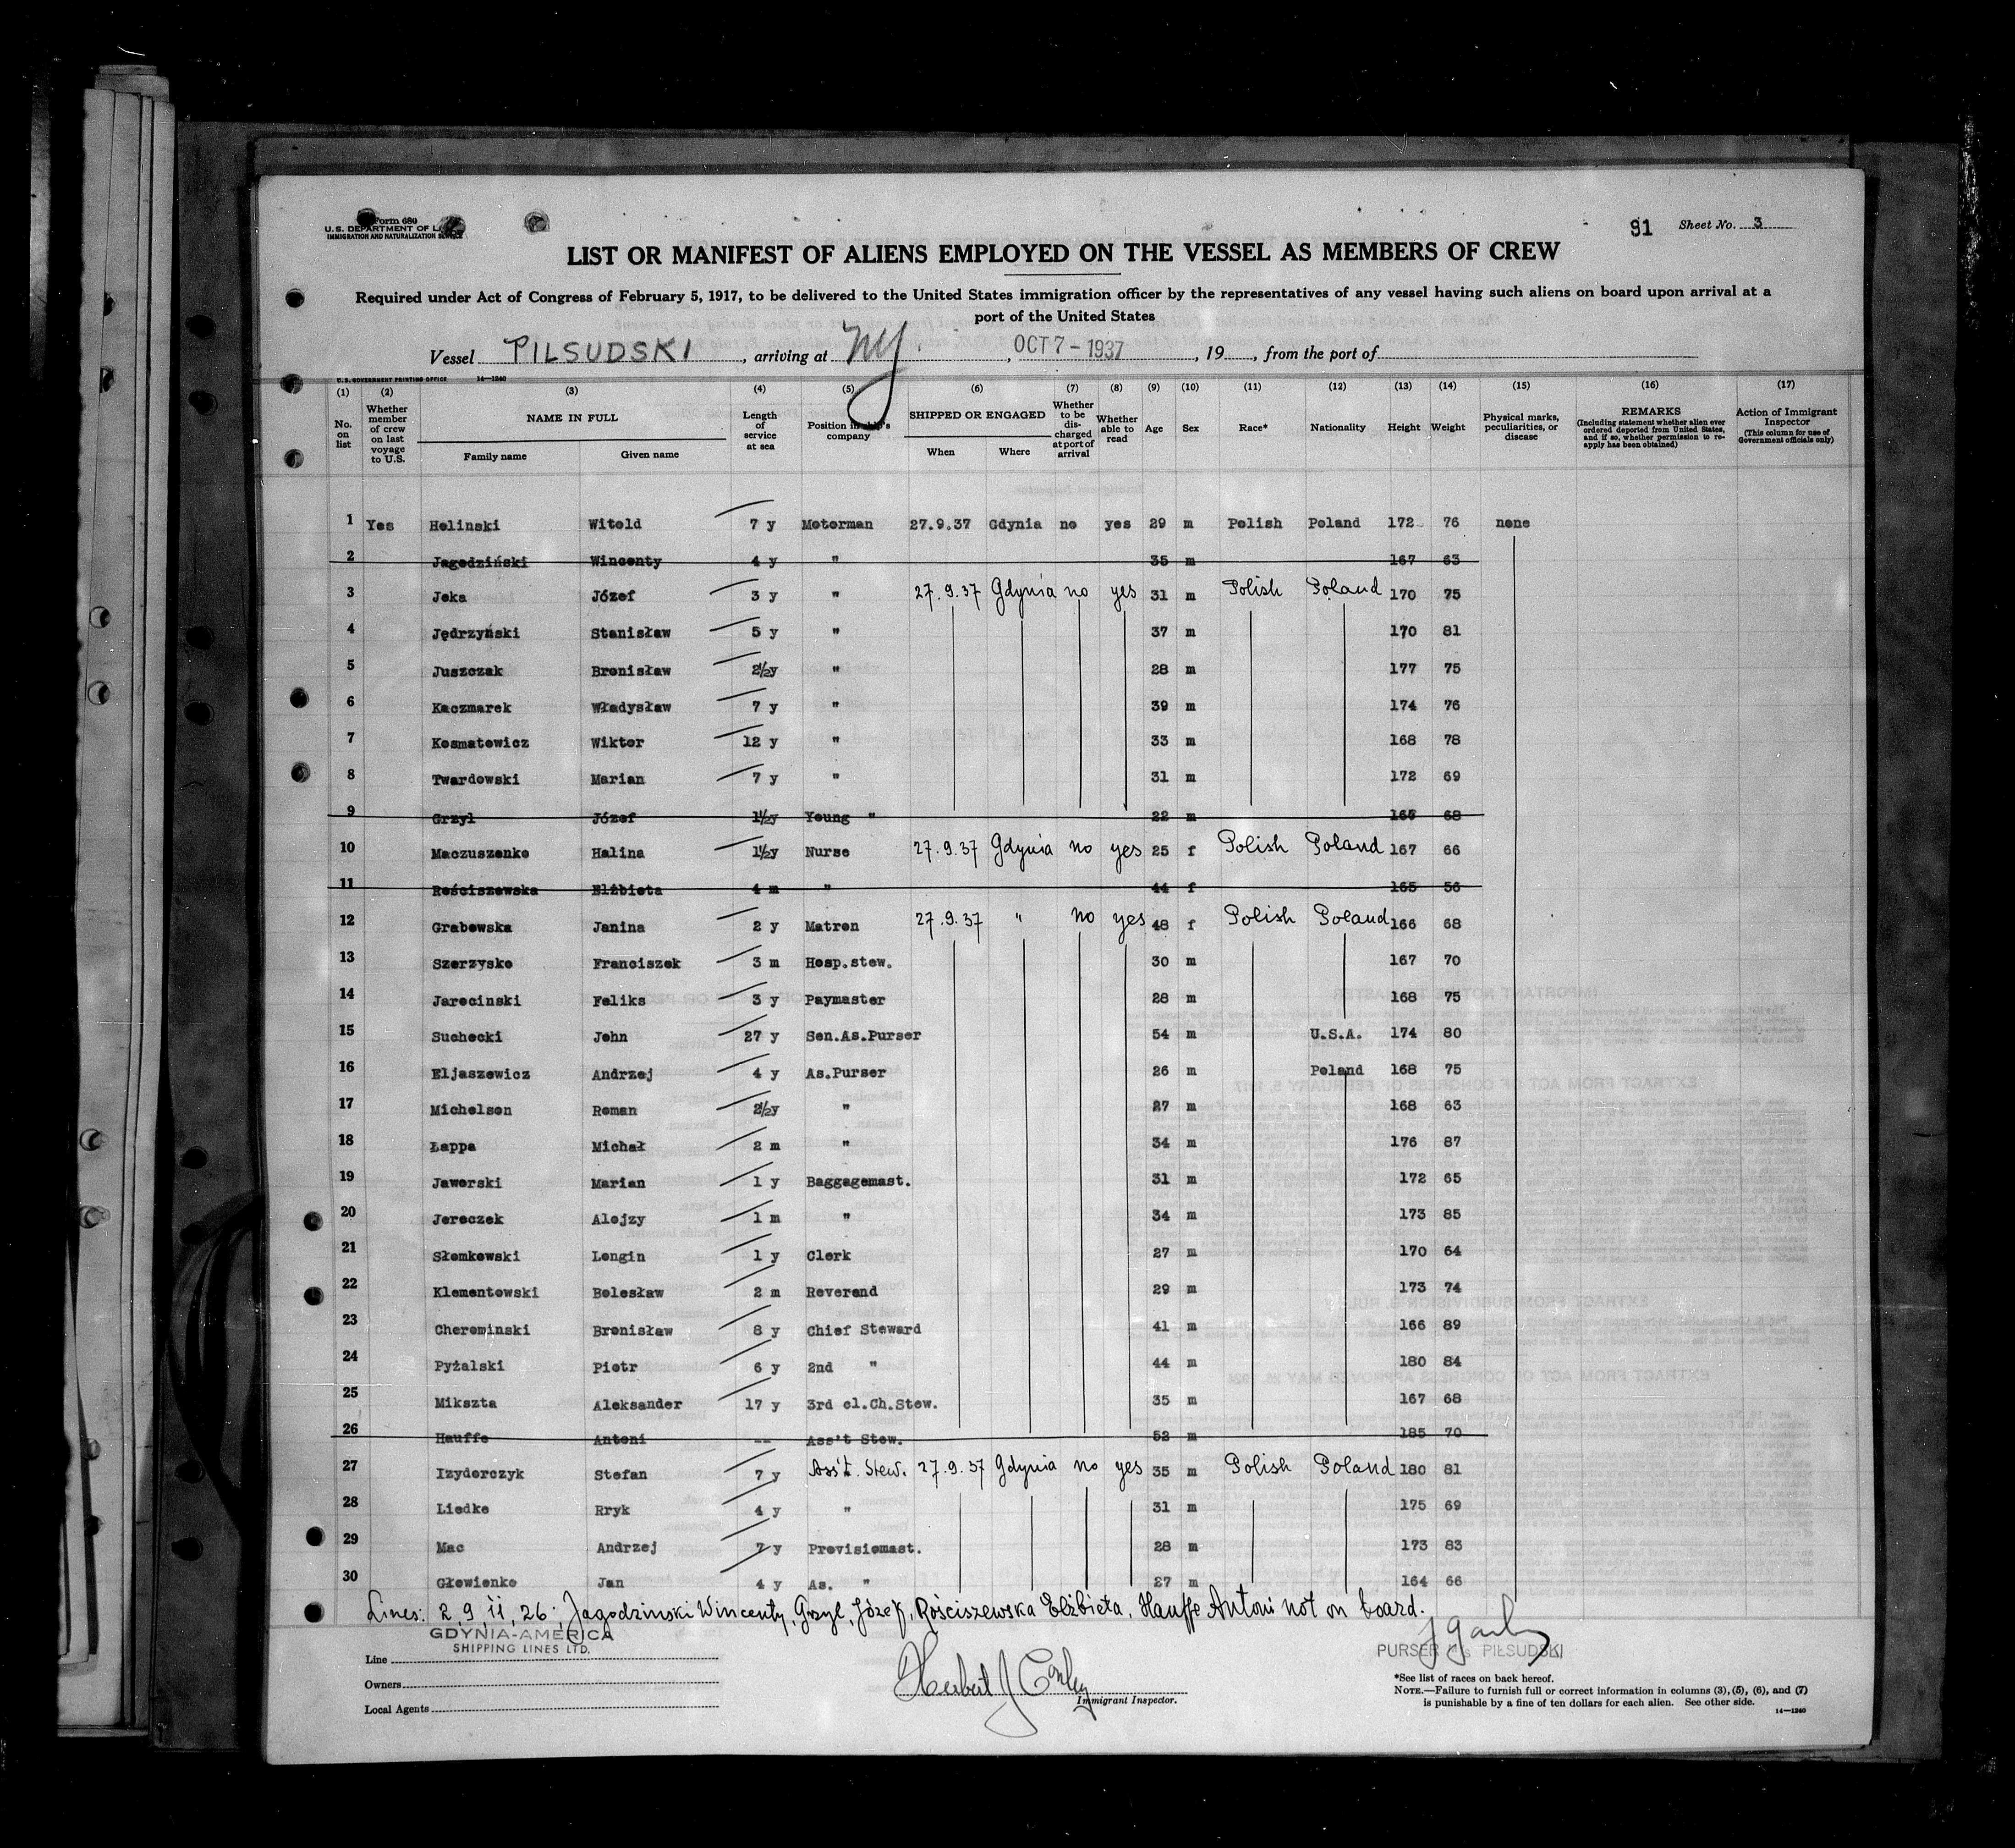 Form 680
U. S. DEPARTMENT OF
IMMIGRATION AND NATURALIZATION
91 Sheet No. 3
LIST OR MANIFEST OF ALIENS EMPLOYED ON THE VESSEL AS MEMBERS OF CREW
Required under Act of Congress of February 5, 1917, to be delivered to the United States immigration officer by the representatives of any vessel having such aliens on board upon arrival at a
port of the United States
Vessel PILSUDSKI, arriving at NY, OCT 7 - 1937, 19, from the port of
U. S. GOVERNMENT PRINTING OFFICE 14—1240
(1) (2) (3) (4) (5) (6) (7) (8) (9) (10) (11) (12) (13) (14) (15) (16) (17)
No. on list
Whether member of crew on last voyage to U.S.
NAME IN FULL
Family name Given name
Length of service at sea
Position in ship's company
SHIPPED OR ENGAGED
When Where
Whether to be discharged at port of arrival
Whether able to read
Age Sex Race* Nationality Height Weight
Physical marks, peculiarities, or disease
REMARKS
(Including statement whether alien ever ordered deported from United States, and if so, whether permission to reapply has been obtained)
Action of Immigrant Inspector
(This column for use of Government officials only)
1 Yes Helinski Witold 7 y Motorman 27.9.37 Gdynia no yes 29 m Polish Poland 172 76 none
2 Jagodziński Wincenty 4 y " 35 m 167 63
3 Jeka Józef 3 y " 27.9.37 Gdynia no yes 31 m Polish Poland 170 75
4 Jędrzyński Stanisław 5 y " 37 m 170 81
5 Juszczak Bronisław 2½y " 28 m 177 75
6 Kaczmarek Władysław 7 y " 39 m 174 76
7 Kosmatowicz Wiktor 12 y " 33 m 168 78
8 Twardowski Marian 7 y " 31 m 172 69
9 Grzyl Józef 1½y Young " 22 m 165 68
10 Maczuszenko Halina 1½y Nurse 27.9.37 Gdynia no yes 25 f Polish Poland 167 66
11 Rościszewska Elżbieta 4 m " 44 f 165 56
12 Grabowska Janina 2 y Matron 27.9.37 " no yes 48 f Polish Poland 166 68
13 Szerzysko Franciszek 3 m Hosp.stew. 30 m 167 70
14 Jarecinski Feliks 3 y Paymaster 28 m 168 75
15 Suchecki John 27 y Sen.As.Purser 54 m U.S.A. 174 80
16 Eljaszewicz Andrzej 4 y As.Purser 26 m Poland 168 75
17 Michelson Roman 2½y " 27 m 168 63
18 Łappa Michał 2 m " 34 m 176 87
19 Jaworski Marian 1 y Baggagemast. 31 m 172 65
20 Jereczek Alojzy 1 m " 34 m 173 85
21 Słomkowski Longin 1 y Clerk 27 m 170 64
22 Klementowski Bolesław 2 m Reverend 29 m 173 74
23 Chereminski Bronisław 8 y Chief Steward 41 m 166 89
24 Pyżalski Piotr 6 y 2nd " 44 m 180 84
25 Mikszta Aleksander 17 y 3rd cl.Ch.Stew. 35 m 167 68
26 Hauffe Antoni -- Ass't Stew. 52 m 185 70
27 Izyderczyk Stefan 7 y Ass't. Stew. 27.9.37 Gdynia no yes 35 m Polish Poland 180 81
28 Liedke Rryk 4 y " 31 m 175 69
29 Mac Andrzej 7 y Provisiomast. 28 m 173 83
30 Głowienko Jan 4 y As. " 27 m 164 66
Lines: 2, 9, 11, 26; Jagodzinski Wincenty, Grzyl, Józef, Rościszewska Elżbieta, Hauffe Antoni not on board.
GDYNIA-AMERICA
SHIPPING LINES LTD.
Line
Owners
Local Agents
Herbert J Conley
Immigrant Inspector.
PURSER M/s PIŁSUDSKI
*See list of races on back hereof.
NOTE.—Failure to furnish full or correct information in columns (3), (5), (6), and (7)
is punishable by a fine of ten dollars for each alien. See other side.
14—1240